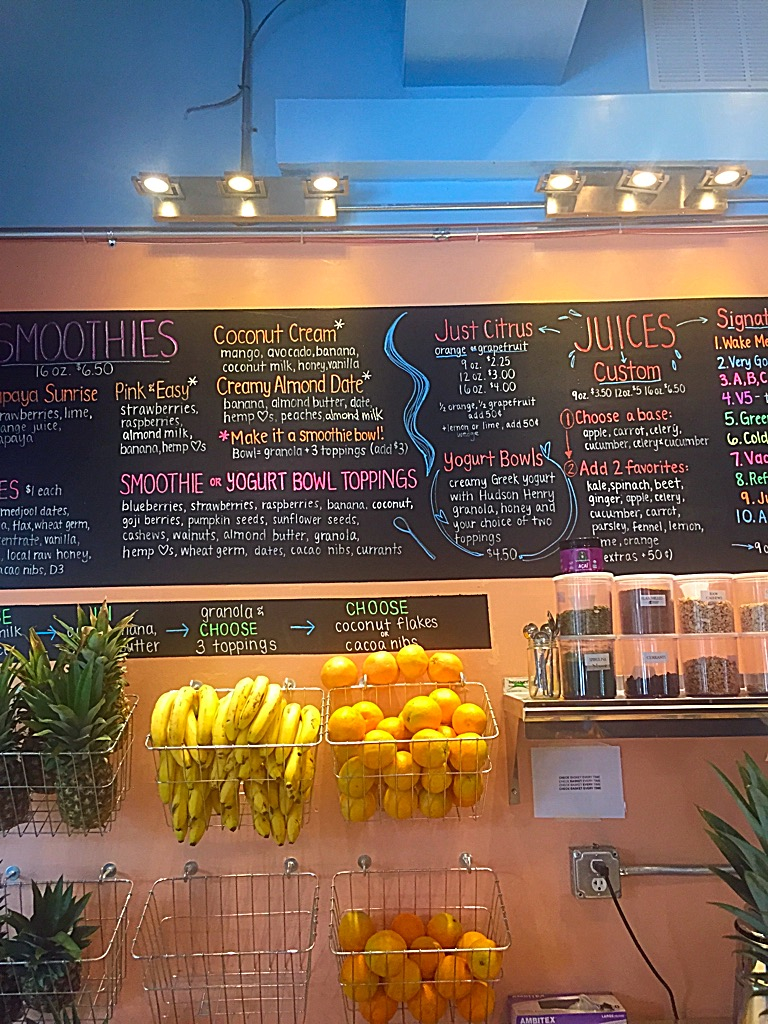 SMOOTHIES
16 oz. $6.50
apaya Sunrise
rawberries, lime,
ange juice,
apaya
Pink & Easy*
strawberries,
raspberries,
almond milk,
banana, hemp ♡s
Coconut Cream*
mango, avocado, banana,
coconut milk, honey, vanilla
Creamy Almond Date*
banana, almond butter, date,
hemp ♡s, peaches, almond milk
*Make it a smoothie bowl!
Bowl= granola + 3 toppings (add $3)
ES $1 each
medjool dates,
a, flax, wheat germ,
entrate, vanilla,
local raw honey,
cao nibs, D3
SMOOTHIE OR YOGURT BOWL TOPPINGS
blueberries, strawberries, raspberries, banana, coconut,
goji berries, pumpkin seeds, sunflower seeds,
cashews, walnuts, almond butter, granola,
hemp ♡s, wheat germ, dates, cacao nibs, currants
Just Citrus
orange or grapefruit
9 oz. $2.25
12 oz. $3.00
16 oz. $4.00
½ orange, ½ grapefruit
add 50¢
+ lemon or lime, add 50¢
Yogurt Bowls
creamy Greek yogurt
with Hudson Henry
granola, honey and
your choice of two
toppings
$4.50
JUICES
Custom
9oz. $3.50 12oz $5 16oz $6.50
① Choose a base:
apple, carrot, celery,
cucumber, celery & cucumber
② Add 2 favorites:
kale, spinach, beet,
ginger, apple, celery,
cucumber, carrot,
parsley, fennel, lemon,
me, orange
extras +50¢)
Signat
1. Wake Me
2. Very Go
3. A, B, C
4. V5 -
5. Green
6. Cold
7. Vac
8. Ref
9. Ju
10. A
CE
milk
nana,
butter
granola &
CHOOSE
3 toppings
CHOOSE
coconut flakes
OR
cacao nibs
ACAI
CHECK BASKET EVERY TIME
CHECK BASKET EVERY TIME
CHECK BASKET EVERY TIME
CHECK BASKET EVERY TIME
AMBITEX
LARGE